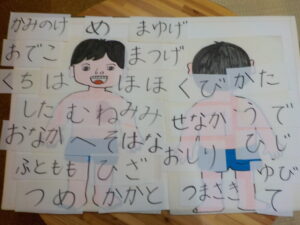 かみのけ め まゆげ
おでこ まつげ
くち は ほほ くび かた
した むね みみ せなか うで
おなか へそ はな おしり ひじ
ふともも ひざ ゆび
つめ かかと つまさき て